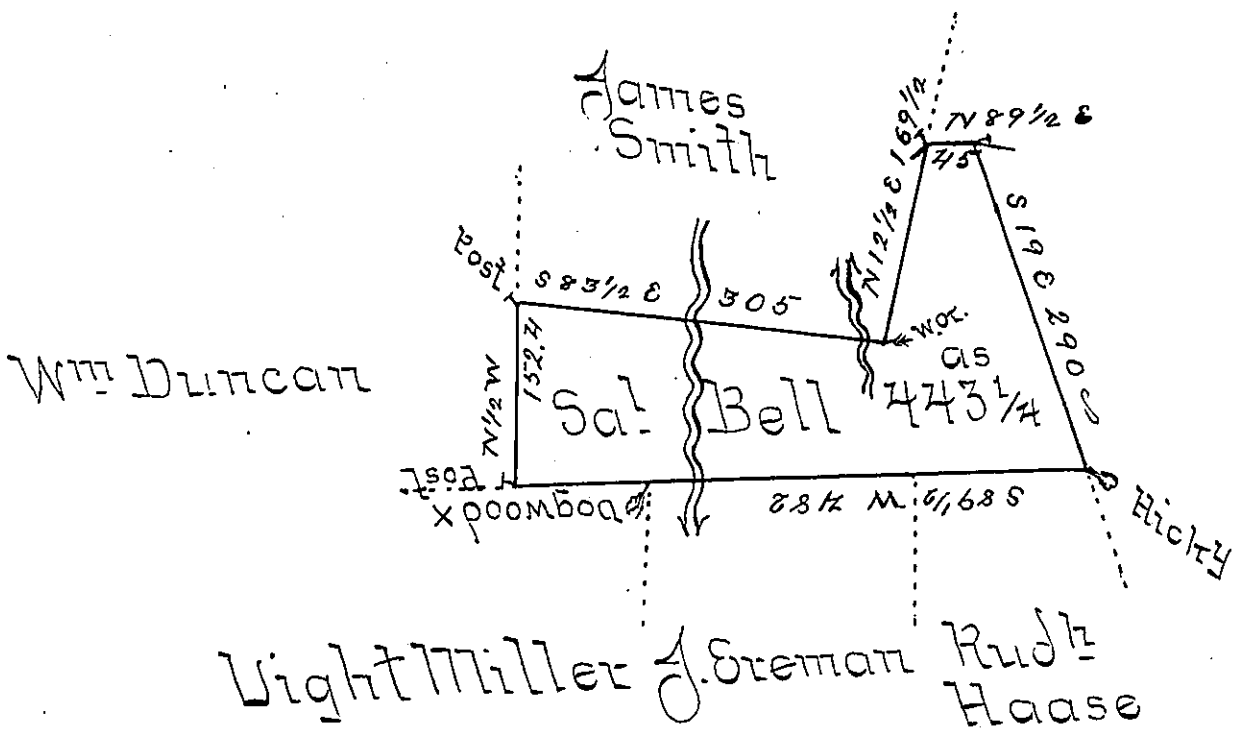 James
Smith
N 89 1/2 E
45
N 12 1/2 E 169 1/2
S 19 E 290
Post
S 83 1/2 E 305
W.O.
as
Wm Duncan
N 1/2 W
152.4
Sal Bell 443 1/4
Post
Dogwood X
S 89 1/2 W 482
Hickry
Vight Miller
J. Ereman
Rudh
Haase